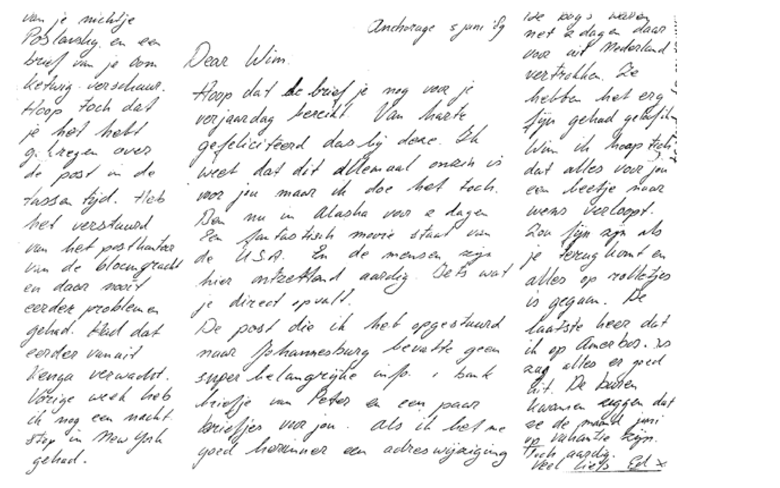 Anchorage 5 juni '89
Dear Wim.
Hoop dat de brief je nog voor je
verjaardag bereikt. Van harte
gefeliciteerd dus bij deze. Ik
weet dat dit allemaal onzin is
voor jou maar ik doe het toch.
Ben nu in Alaska voor 2 dagen
Een fantastisch mooie staat van
de U.S.A. En de mensen zijn
hier ontzettend aardig. Iets wat
je direct opvalt.
De post die ik heb opgestuurd
naar Johannesburg bevatte geen
super belangrijke info. 1 bank
briefje van Peter en een paar
briefjes voor jou. Als ik het me
goed herinner een adreswijziging
van je nichtje
Poslavsky en een
brief van je oom
Ketwig verschuur.
Hoop toch dat
je het hebt
gekregen over
de post in de
tussen tijd. Heb
het verstuurd
van het postkantoor
van de bloemgracht
en daar nooit
eerder problemen
gehad. Had dat
eerder vanuit
Kenya verwacht.
Vorige week heb
ik nog een nacht
stop in New York
gehad.
waren
net 2 dagen daar
voor uit Nederland
vertrokken. Ze
hebben het erg
fijn gehad
Wim ik hoop toch
dat alles voor jou
een beetje naar
wens verloopt.
Zou fijn zijn als
je terug komt en
alles op rolletjes
is gegaan. De
laatste keer dat
ik op
zag alles er goed
uit. De buren
kwamen zeggen dat
ze de maand juni
op vakantie zijn.
Toch aardig.
Veel liefs Ed x